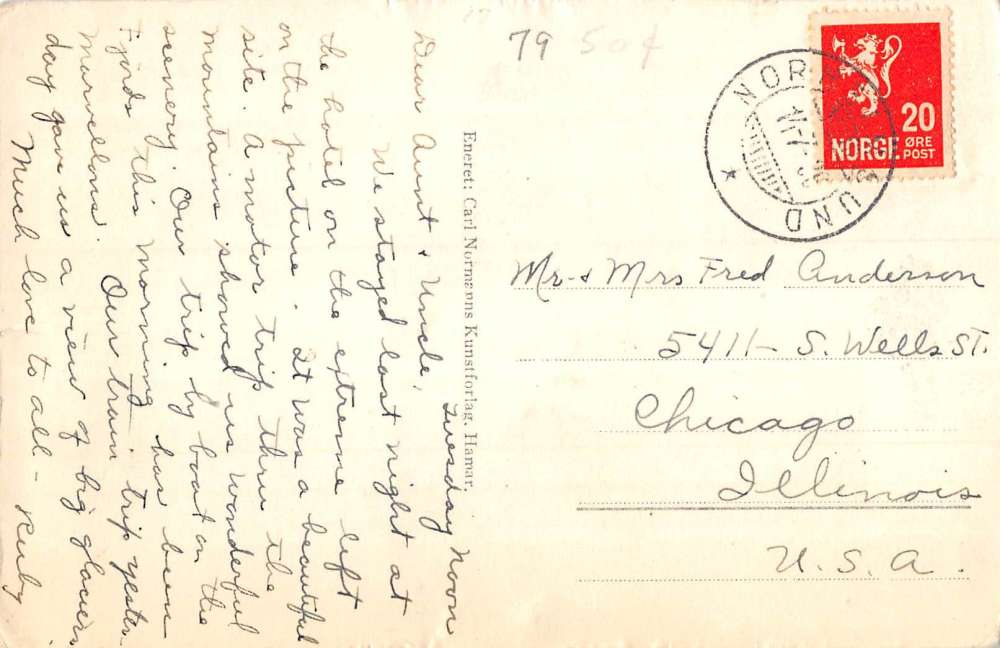 Tuesday Noon
Dear Aunt & Uncle,
We stayed last night at
the hotel on the extreme left
on the picture. It was a beautiful
site. A motor trip thru the
mountains showed us wonderful
scenery. Our trip by boat on the
Fjords this morning has been
marvellous. Our train trip yester-
day gave us a view of big glaciers.
Much love to all - Ruby
Eneret: Carl Normanns Kunstforlag, Hamar.
79 50¢
NOR
UND
20
ØRE
NORGE POST
Mr. & Mrs Fred Anderson
5411- S. Wells St.
Chicago
Illinois
U. S. A.